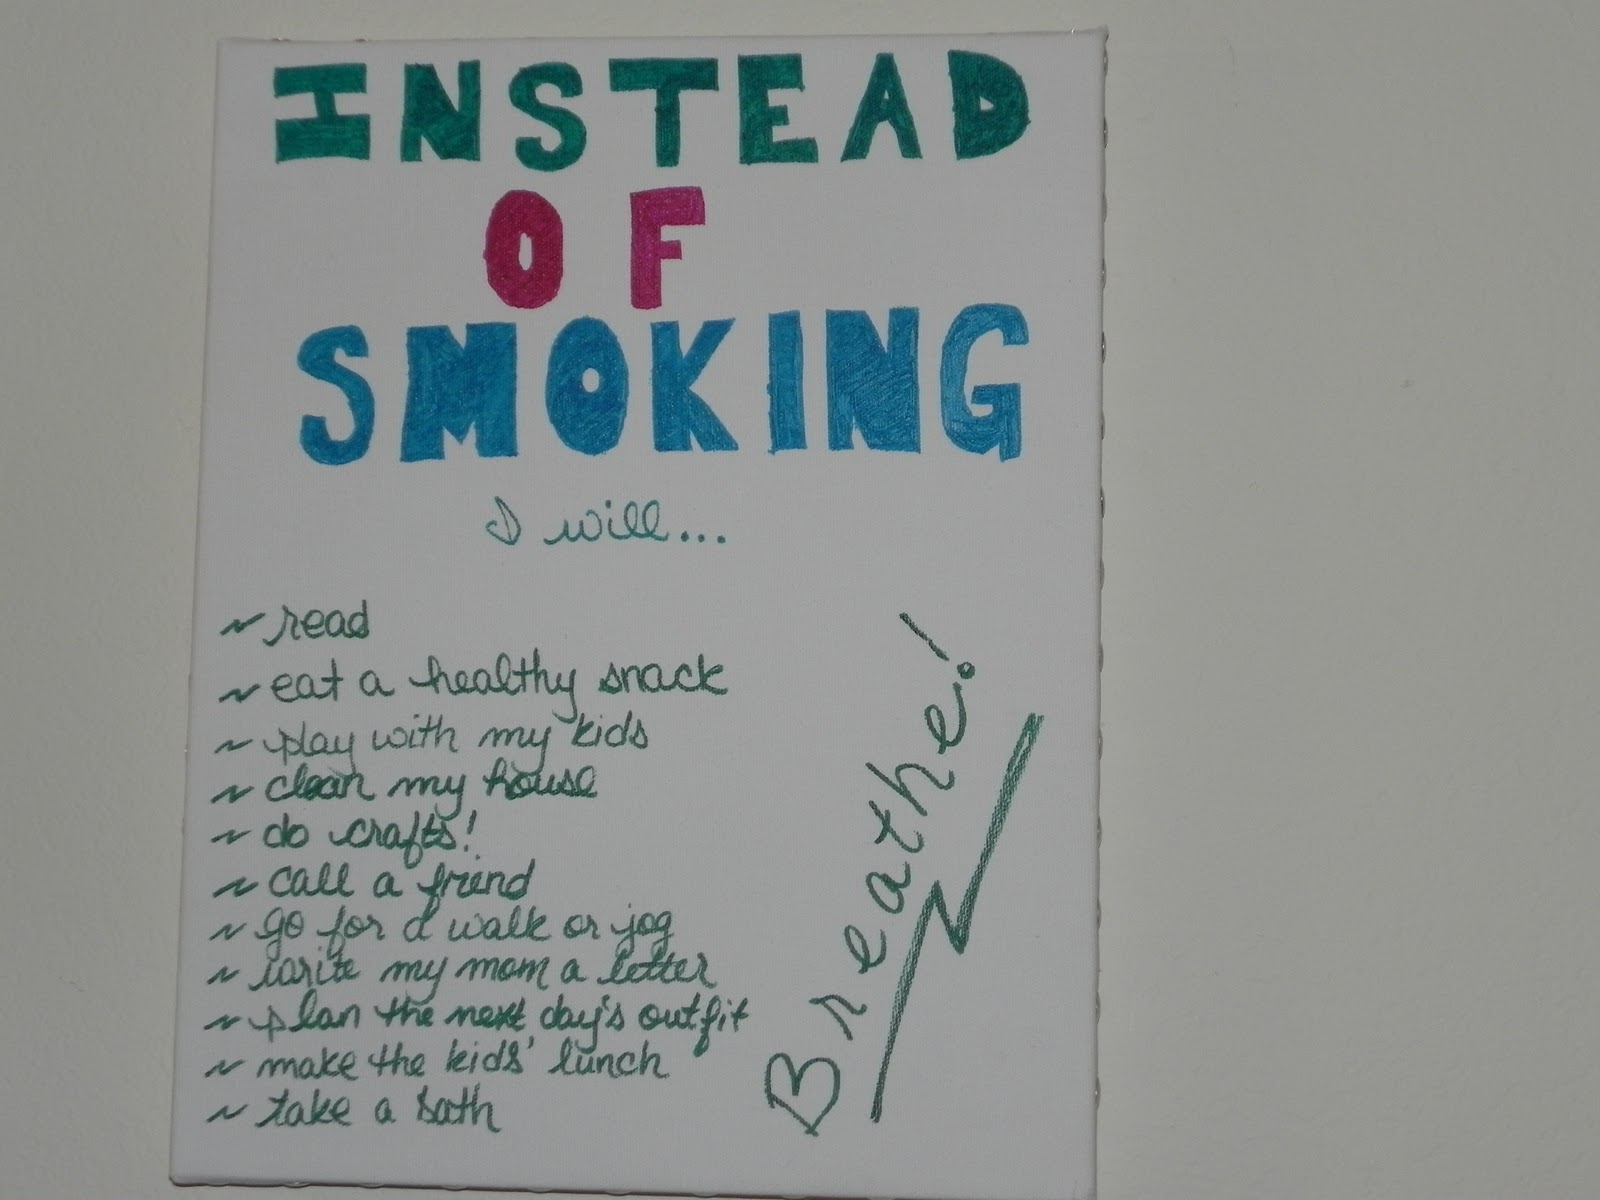 INSTEAD
OF
SMOKING
I will...
~ read
~ eat a healthy snack
~ play with my kids
~ clean my house
~ do crafts!
~ call a friend
~ go for a walk or jog
~ write my mom a letter
~ plan the next day's outfit
~ make the kids' lunch
~ take a bath
Breathe!